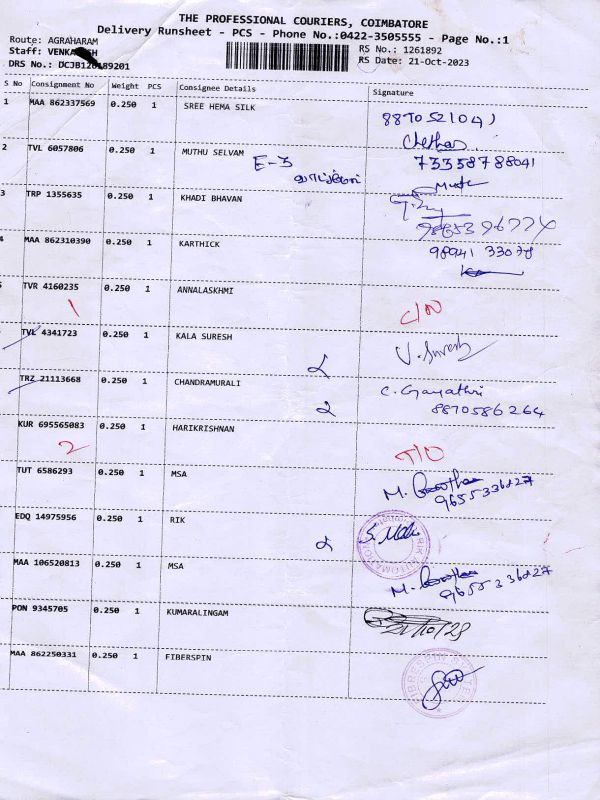 THE PROFESSIONAL COURIERS, COIMBATORE
Delivery Runsheet - PCS - Phone No.:0422-3505555 - Page No.:1
Route: AGRAHARAM
RS No.: 1261892
Staff: VENKA
RS Date: 21-Oct-2023
DRS No.: DCJB120189201
S No Consignment No Weight PCS Consignee Details Signature
1 MAA 862337569 0.250 1 SREE HEMA SILK
Chethan
2 TVL 6057806 0.250 1 MUTHU SELVAM E-3
3 TRP 1355635 0.250 1 KHADI BHAVAN
4 MAA 862310390 0.250 1 KARTHICK 98941 33078
5 TVR 4160235 0.250 1 ANNALASKHMI
1
TVL 4341723 0.250 1 KALA SURESH V. Suresh
TRZ 21113668 0.250 1 CHANDRAMURALI C. Gayathri
2 8870586264
KUR 695565083 0.250 1 HARIKRISHNAN
2 T/O
TUT 6586293 0.250 1 MSA M.
9655336827
EDQ 14975956 0.250 1 RIK
MAA 106520813 1 0.250 1 MSA M.
9655336827
PON 9345705 0.250 1 KUMARALINGAM 21/10/23
MAA 862250331 0.250 1 FIBERSPIN